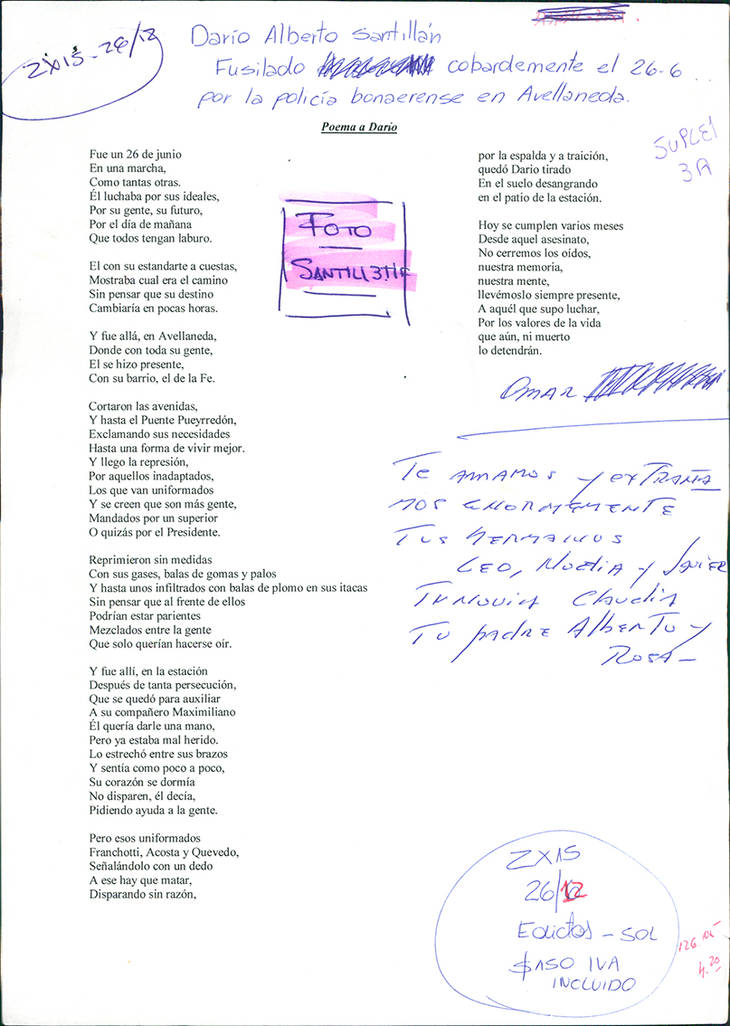 2X15-26/12
Darío Alberto Santillán
Fusilado cobardemente el 26-6
por la policía bonaerense en Avellaneda.
Poema a Darío
Fue un 26 de junio
En una marcha,
Como tantas otras.
Él luchaba por sus ideales,
Por su gente, su futuro,
Por el día de mañana
Que todos tengan laburo.
El con su estandarte a cuestas,
Mostraba cual era el camino
Sin pensar que su destino
Cambiaría en pocas horas.
Y fue allá, en Avellaneda,
Donde con toda su gente,
El se hizo presente,
Con su barrio, el de la Fe.
Cortaron las avenidas,
Y hasta el Puente Pueyrredón,
Exclamando sus necesidades
Hasta una forma de vivir mejor.
Y llego la represión,
Por aquellos inadaptados,
Los que van uniformados
Y se creen que son más gente,
Mandados por un superior
O quizás por el Presidente.
Reprimieron sin medidas
Con sus gases, balas de gomas y palos
Y hasta unos infiltrados con balas de plomo en sus itacas
Sin pensar que al frente de ellos
Podrían estar parientes
Mezclados entre la gente
Que solo querían hacerse oír.
Y fue allí, en la estación
Después de tanta persecución,
Que se quedó para auxiliar
A su compañero Maximiliano
Él quería darle una mano,
Pero ya estaba mal herido.
Lo estrechó entre sus brazos
Y sentía como poco a poco,
Su corazón se dormía
No disparen, él decía,
Pidiendo ayuda a la gente.
Pero esos uniformados
Franchotti, Acosta y Quevedo,
Señalándolo con un dedo
A ese hay que matar,
Disparando sin razón,
FOTO
por la espalda y a traición,
quedó Darío tirado
En el suelo desangrando
en el patio de la estación.
Hoy se cumplen varios meses
Desde aquel asesinato,
No cerremos los oídos,
nuestra memoria,
nuestra mente,
llevémoslo siempre presente,
A aquél que supo luchar,
Por los valores de la vida
que aún, ni muerto
lo detendrán.
OMAR
Te amamos y extraña
mos enormemente
Tus hermanos
Leo, Noelia y Javier
Tu novia Claudia
Tu padre Alberto y
Rosa-
2X15
26/12
Edictos - SOL
IVA
INCLUIDO